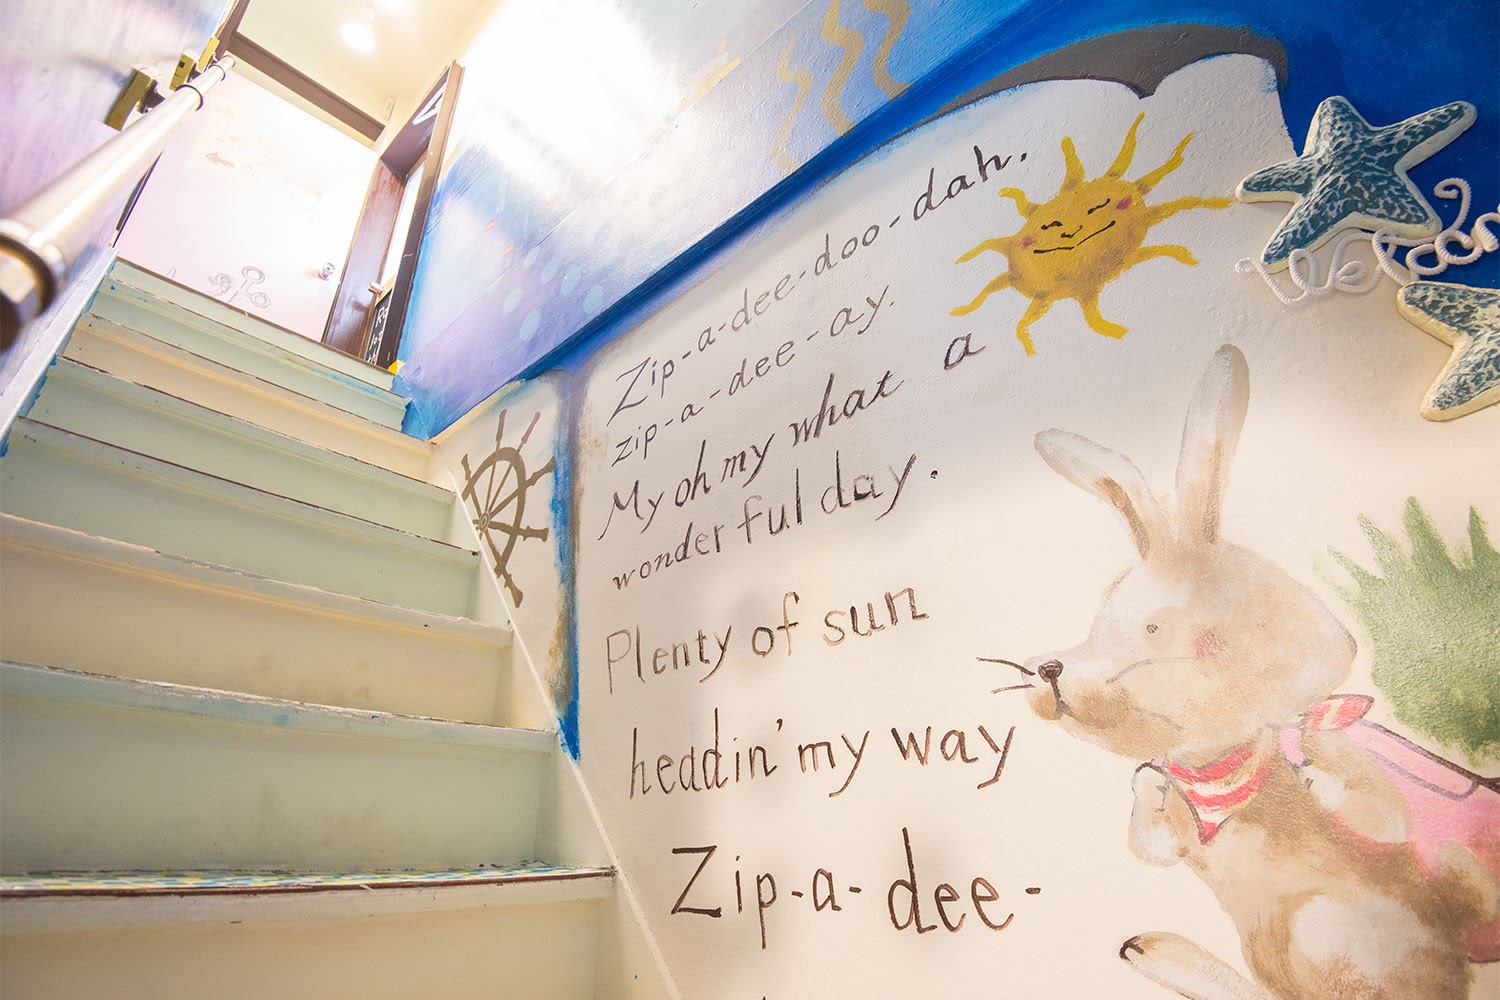 Zip-a-dee-doo-dah.
zip-a-dee-ay.
My oh my what a
wonderful day.
Plenty of sun
headin' my way
Zip-a-dee-
Welcom